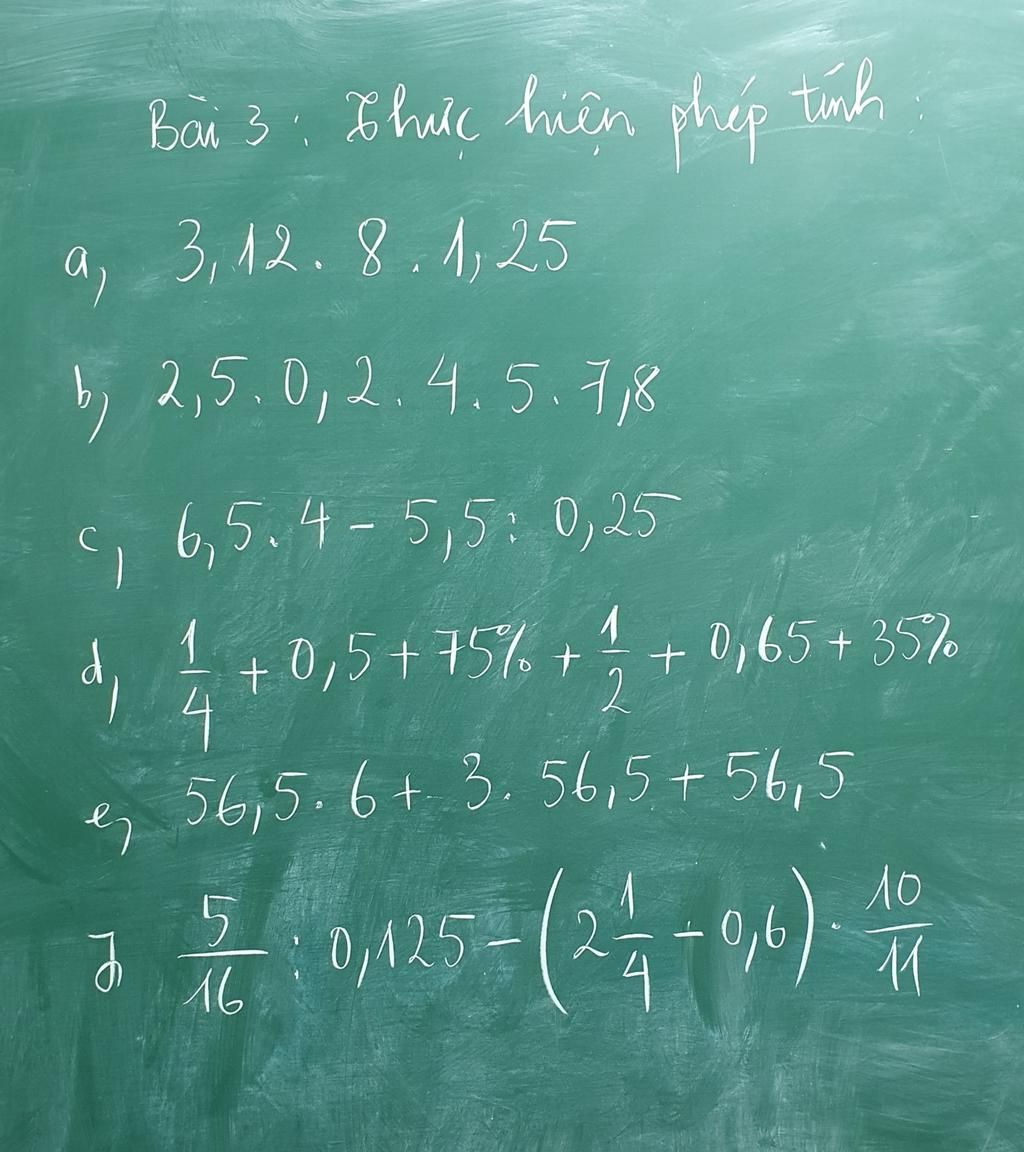 Bài 3 : Thực hiện phép tính :
a, 3,12 . 8 . 1,25
b, 2,5 . 0,2 . 4 . 5 . 7,8
c, 6,5 . 4 - 5,5 : 0,25
d, 1/4 + 0,5 + 75% + 1/2 + 0,65 + 35%
e, 56,5 . 6 + 3 . 56,5 + 56,5
g, 5/16 : 0,125 - (2 1/4 - 0,6) . 10/11